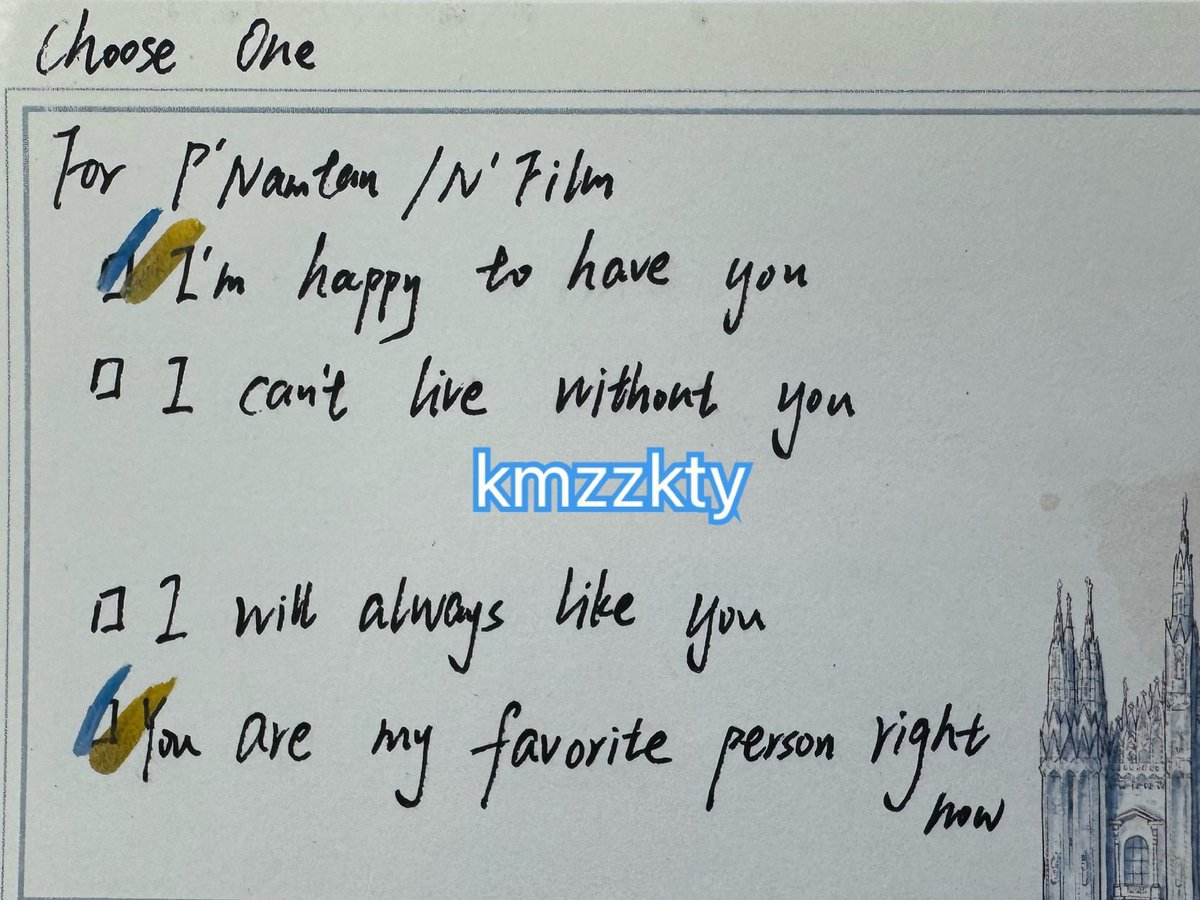 Choose One
For P'Namtan /N'Film
□ I'm happy to have you
□ I can't live without you
kmzzkty
□ I will always like you
□ You are my favorite person right
now